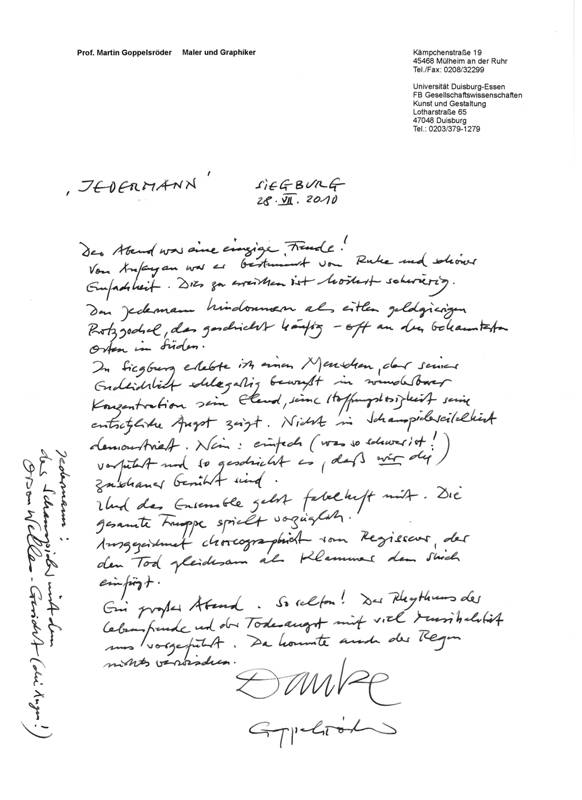 Prof. Martin Goppelsröder Maler und Graphiker
Kämpchenstraße 19
45468 Mülheim an der Ruhr
Tel./Fax: 0208/32299
Universität Duisburg-Essen
FB Gesellschaftswissenschaften
Kunst und Gestaltung
Lotharstraße 65
47048 Duisburg
Tel.: 0203/379-1279
'JEDERMANN' SIEGBURG
28. VII. 2010
Der Abend war eine einzige Freude!
Von Anfang an war er bestimmt von Ruhe und schöner
Einfachheit. Dies zu erreichen ist höchst schwierig.
Den Jedermann hinzunehmen als eitlen geldgierigen
das geschieht häufig - oft an den bekanntesten
Orten im Süden.
In Siegburg erlebte ich einen Menschen, der seiner
Endlichkeit schlagartig bewußt in wunderbarer
Konzentration sein Elend, seine Hoffnungslosigkeit seine
entsetzliche Angst zeigt. Nicht in Schauspielereitelkeit
demonstriert. Nein: einfach (was so schwer ist!)
vorführt und so geschieht es, daß wir die
Zuschauer berührt sind.
Und das Ensemble geht fabelhaft mit. Die
gesamte Truppe spielt vorzüglich.
Ausgezeichnet choreographiert vom Regisseur, der
den Tod gleichsam als Klammer dem Stück
einfügt.
Ein großer Abend. So selten! Der Rhythmus der
Lebensfreude und der Todesangst mit viel Musikalität
uns vorgeführt. Da konnte auch der Regen
nichts verwischen.
Danke
Goppelsröder
Jedermann:
der Schauspieler mit dem
Orson Welles-Gesicht (die Augen!)